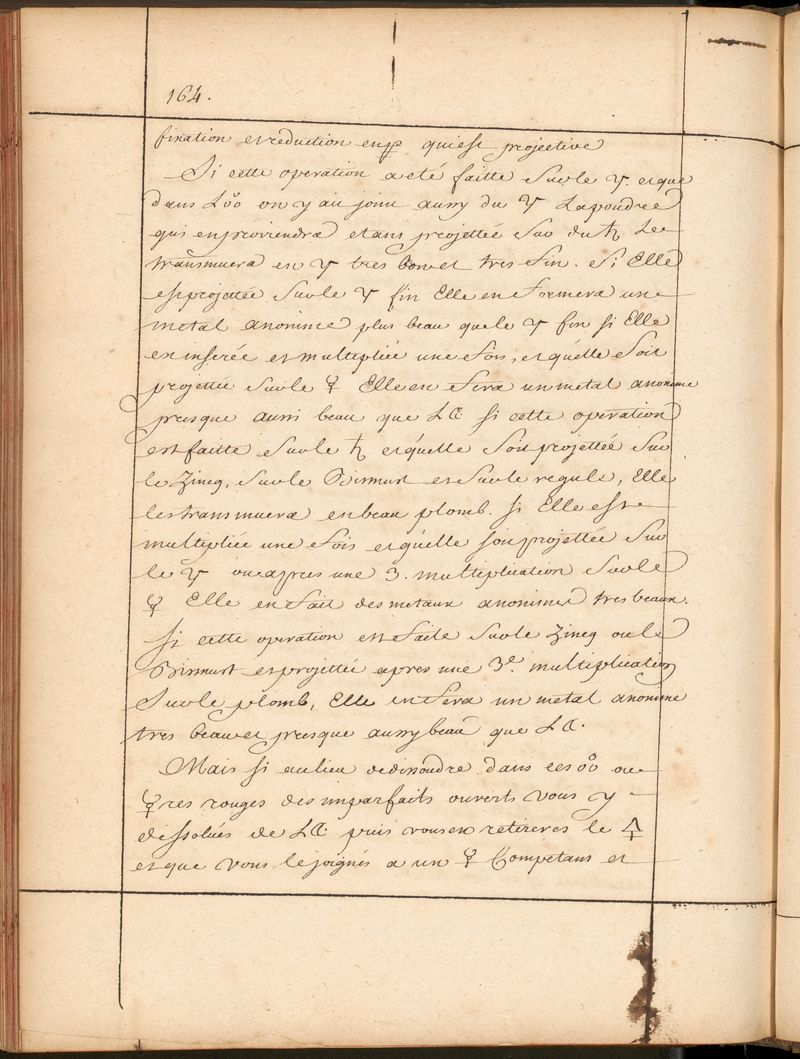 164.
fixation et reduction en qui est projective
Si cette operation a eté faitte sur le ♃. et que
dans L'o°o on y ait joint aussy du ♃ La poudre
qui en proviendra etans projettée sur du ♄ Le
transmuera en ♃ tres bon et tres fin. Si Elle
est projettée sur le ♃ fin Elle en fremera un
metal anonime plus beau que le ♃ fin si Elle
en inserée et multipliée une fois, et qu'elle soit
projettée sur le ♀ Elle en fera un metal anonime
presque aussi beau que L☾ si cette operation
est faitte sur le ♄ et qu'elle soit projettée sur
le Zincq, sur le Bismust et sur le regule, Elle
les transmuera en beau plomb. si Elle est
multipliée une fois et qu'elle soit projettée sur
le ♃ ou apres une 3. multiplication sur le
♀ Elle en fait des metaux anonimes tres beaux.
Si cette operation est faite sur le Zincq ou le
Bismust et projettée apres une 3e. multiplication
sur le plomb, Elle en fera un metal anonime
tres beau et presque aussy beau que L☾.
Mais si au lieu de dissoudre dans ces o°o ou
☿res rouges des imparfaits ouverts vous y
dissolvés de L☾ puis vous en retireres le 🜍
et que vous le joignés a un ☿ Competans et